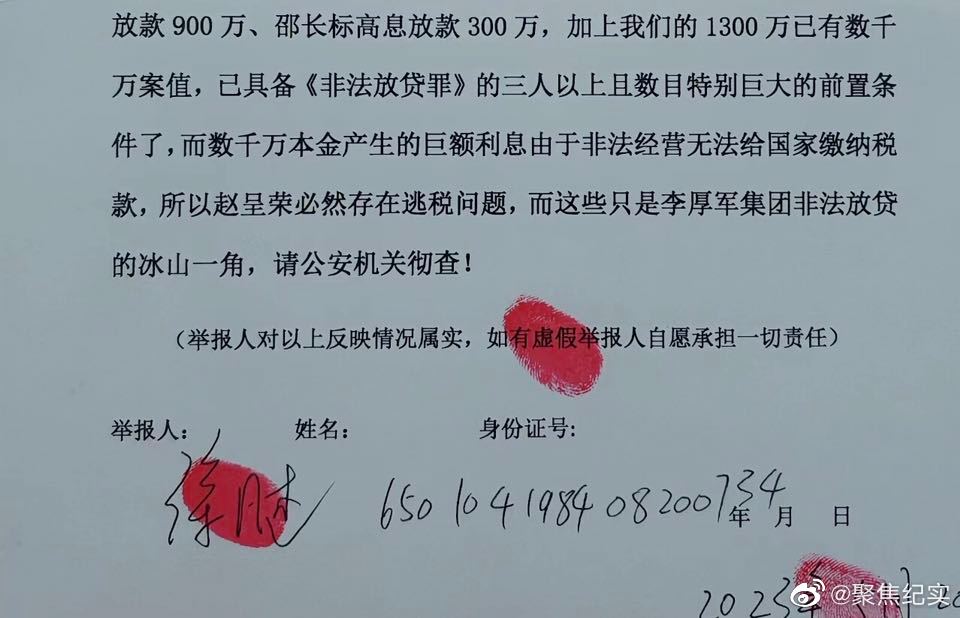 放款 900 万、邵长标高息放款 300 万，加上我们的 1300 万已有数千
万案值，已具备《非法放贷罪》的三人以上且数目特别巨大的前置条
件了，而数千万本金产生的巨额利息由于非法经营无法给国家缴纳税
款，所以赵呈荣必然存在逃税问题，而这些只是李厚军集团非法放贷
的冰山一角，请公安机关彻查！
（举报人对以上反映情况属实，如有虚假举报人自愿承担一切责任）
举报人： 姓名： 身份证号:
徐 650104198408200734
年 月 日
2023年
@聚焦纪实